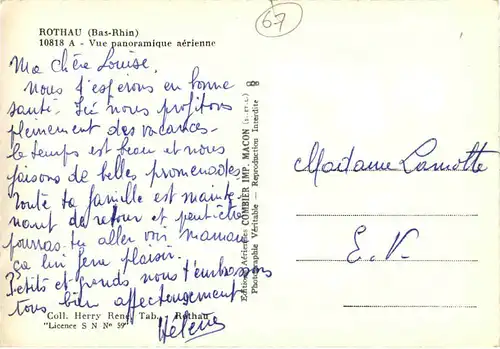 ROTHAU (Bas-Rhin)
10818 A - Vue panoramique aérienne
67
Ma chère Louise,
Nous t'espérons en bonne
santé. Ici nous profitons
pleinement des vacances -
le temps est beau et nous
faisons de belles promenades
Toute ta famille est mainte-
nant de retour et peut-être
pourras-tu aller voir maman
ça lui fera plaisir.
Petits et grands nous t'embrassons
tous bien affectueusement
Hélène
Coll. Herry René, Tab., Rothau
"Licence S N N° 59"
Editions Aériennes COMBIER IMP. MACON (S.-et-L.)
Photographie Véritable - Reproduction Interdite
Madame Lamotte
E.V.